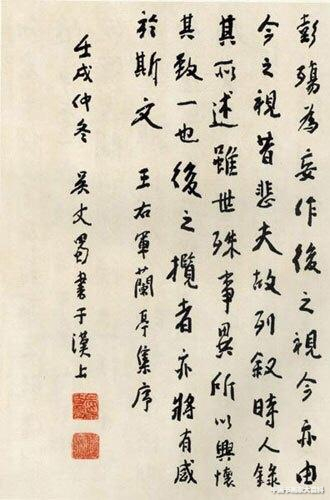 彭殤為妄作後之視今亦由
今之視昔悲夫故列叙時人錄
其所述雖世殊事異所以興懷
其致一也後之攬者亦將有感
於斯文 王右軍蘭亭集序
壬戌仲冬 吳丈蜀書于漢上